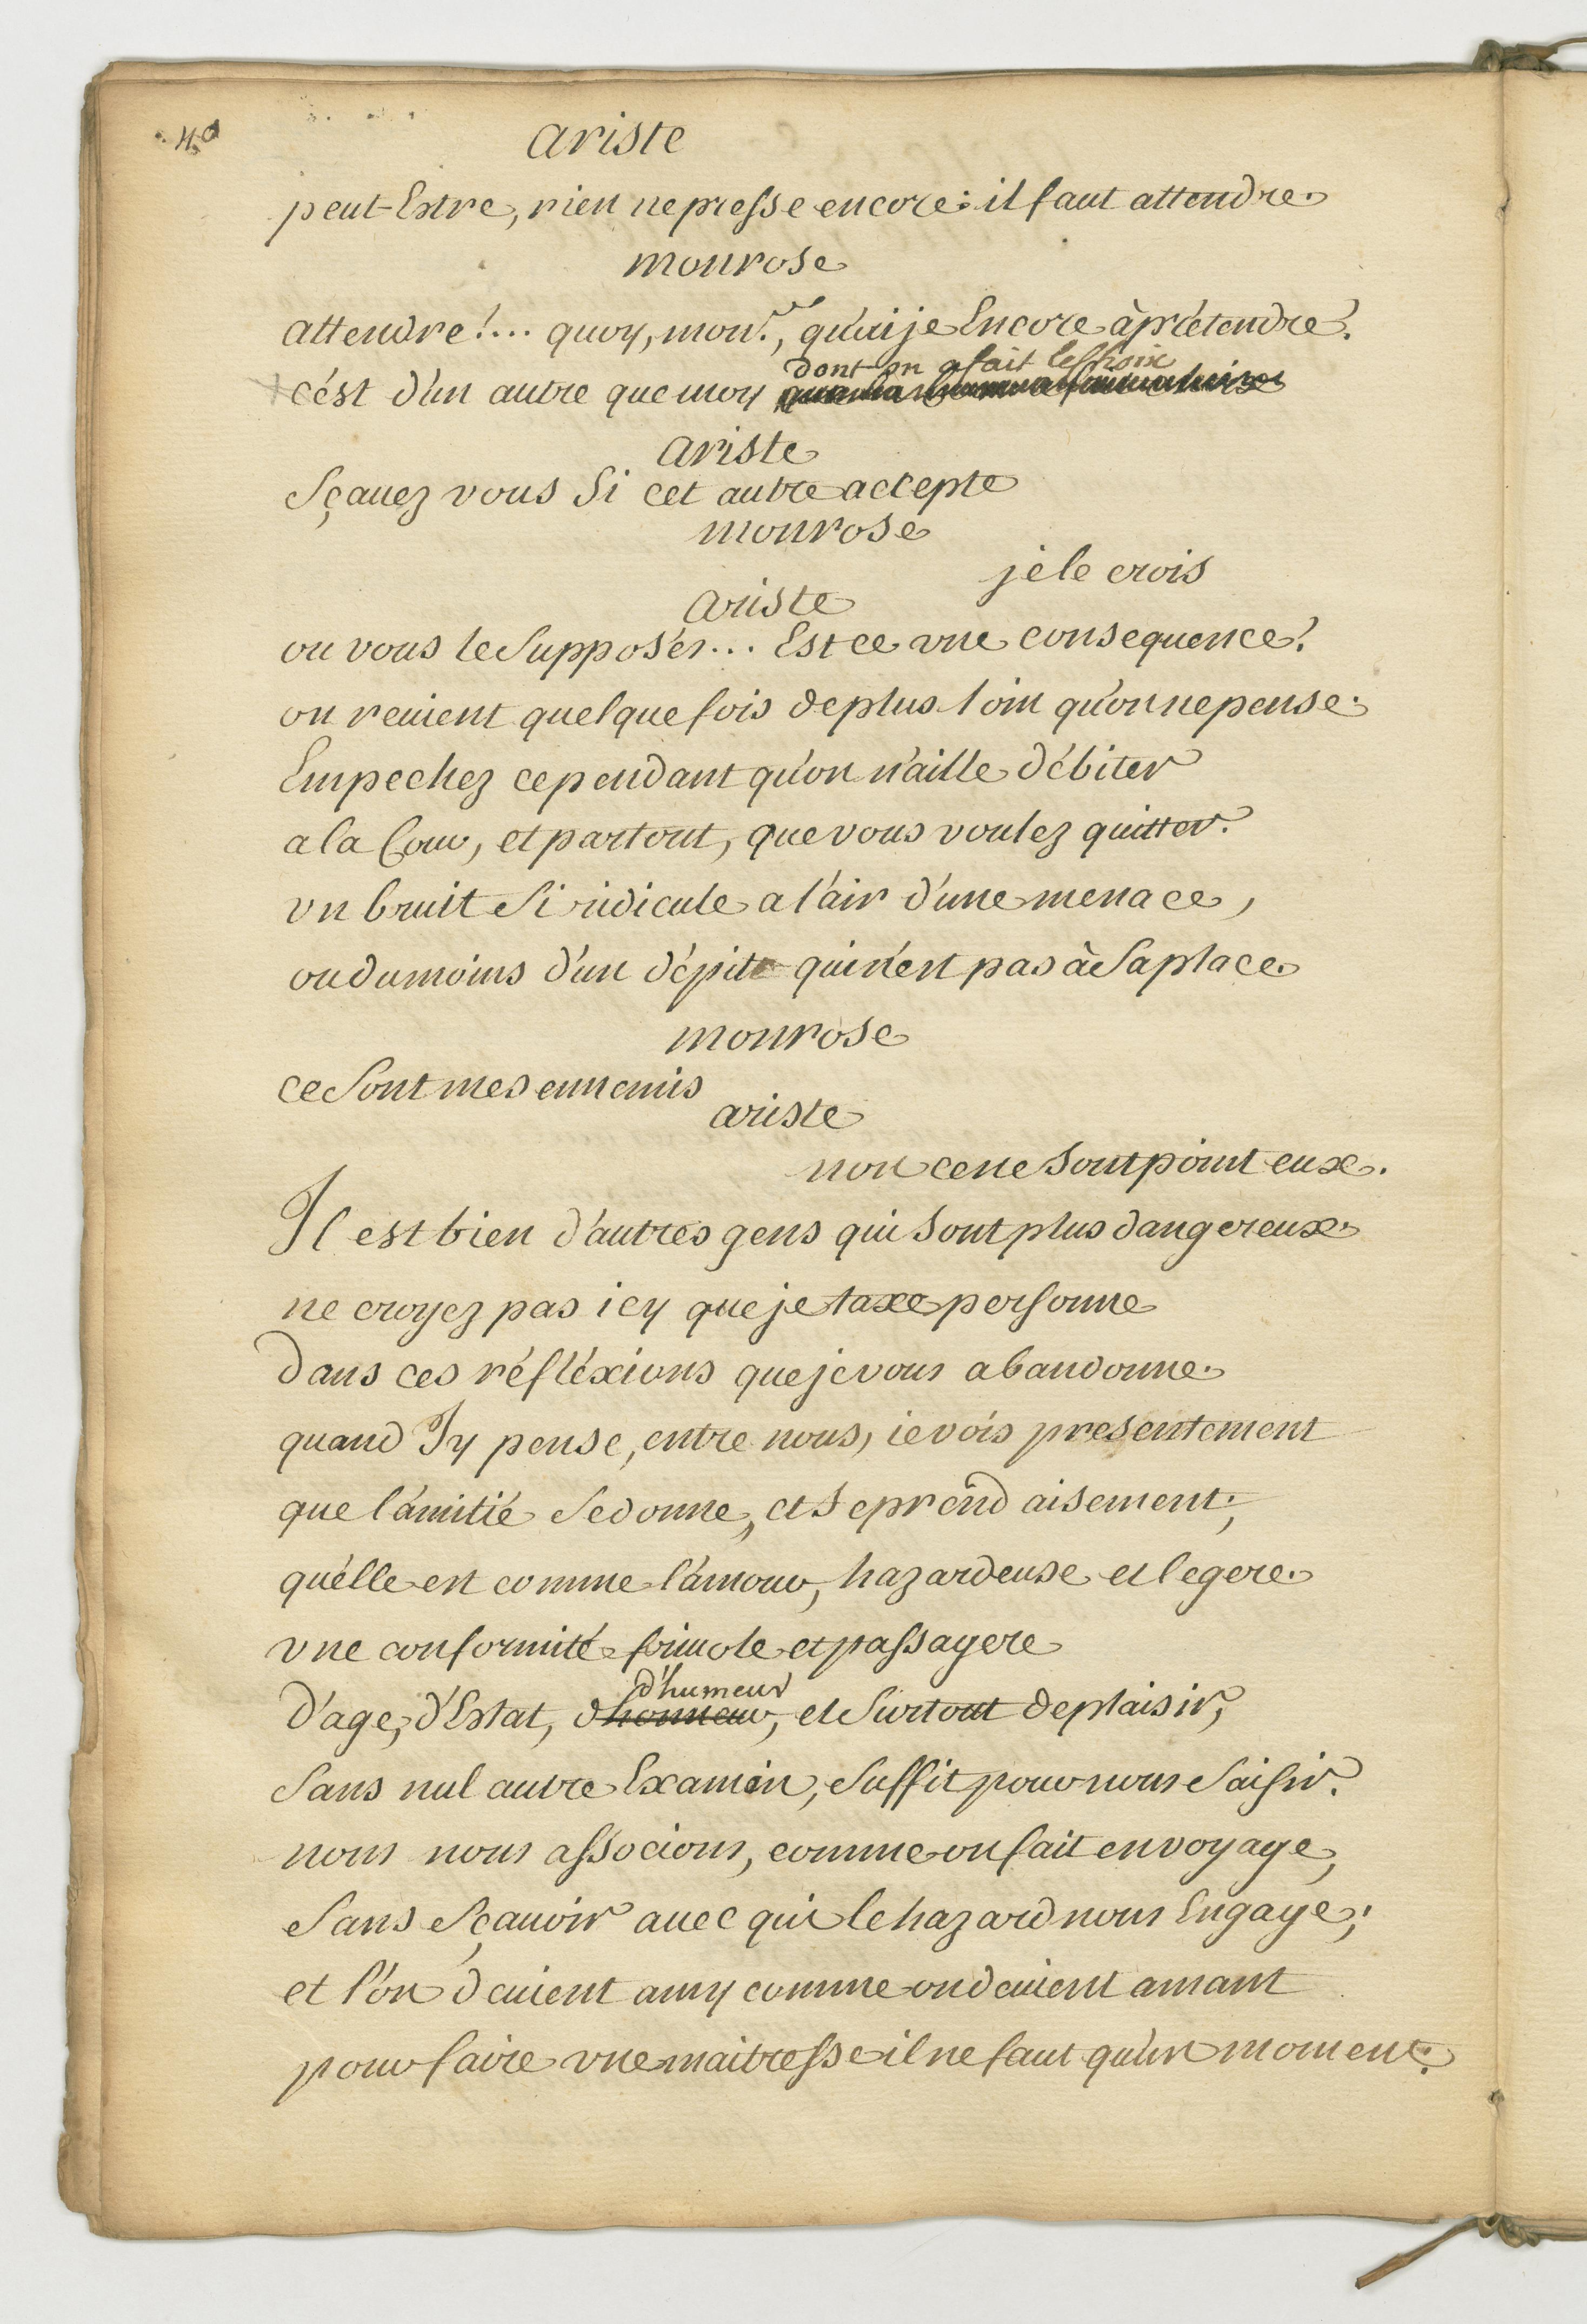 40
ariste
peut-Estre, rien ne presse encore: il faut attendre.
monrose
attendre!... quoy, monr., qu'ai je Encore à prétendre?
c'ést d'un autre que moy dont on a fait le choix
ariste
Sçauez vous Si cet autre accepte
monrose
je le crois
ariste
ou vous le Supposés... Est ce vne consequence?
on reuient quelque fois de plus loin qu'on ne pense.
Empechez cependant qu'on n'aille débiter
a la Cour, et partout, que vous voulez quitter.
vn bruit Si ridicule a l'air d'une menace,
ou du moins d'un dépit qui n'est pas à Sa place.
monrose
ce Sont mes ennemis
ariste
non ce ne Sont point eux.
Il est bien d'autres gens qui Sont plus dangereux.
ne croyez pas icy que je taxe personne
Dans ces réfléxions que je vous abandonne.
quand Jy pense, entre nous, ie vois presentement
que l'amitié Se donne, et Se prend aisement;
qu'élle est comme l'amour, hazardeuse et legere.
vne conformité friuole et passagere
D'age, d'Estat, d'honneur, d'humeur et Surtout de plaisir,
Sans nul autre Examen, Suffit pour nous Saisir.
nous nous associons, comme on fait en voyage,
Sans Sçauoir auec qui le hazard nous Engage;
et l'on deuient amy comme on deuient amant
pour faire vne maitresse il ne faut qu'un moment.